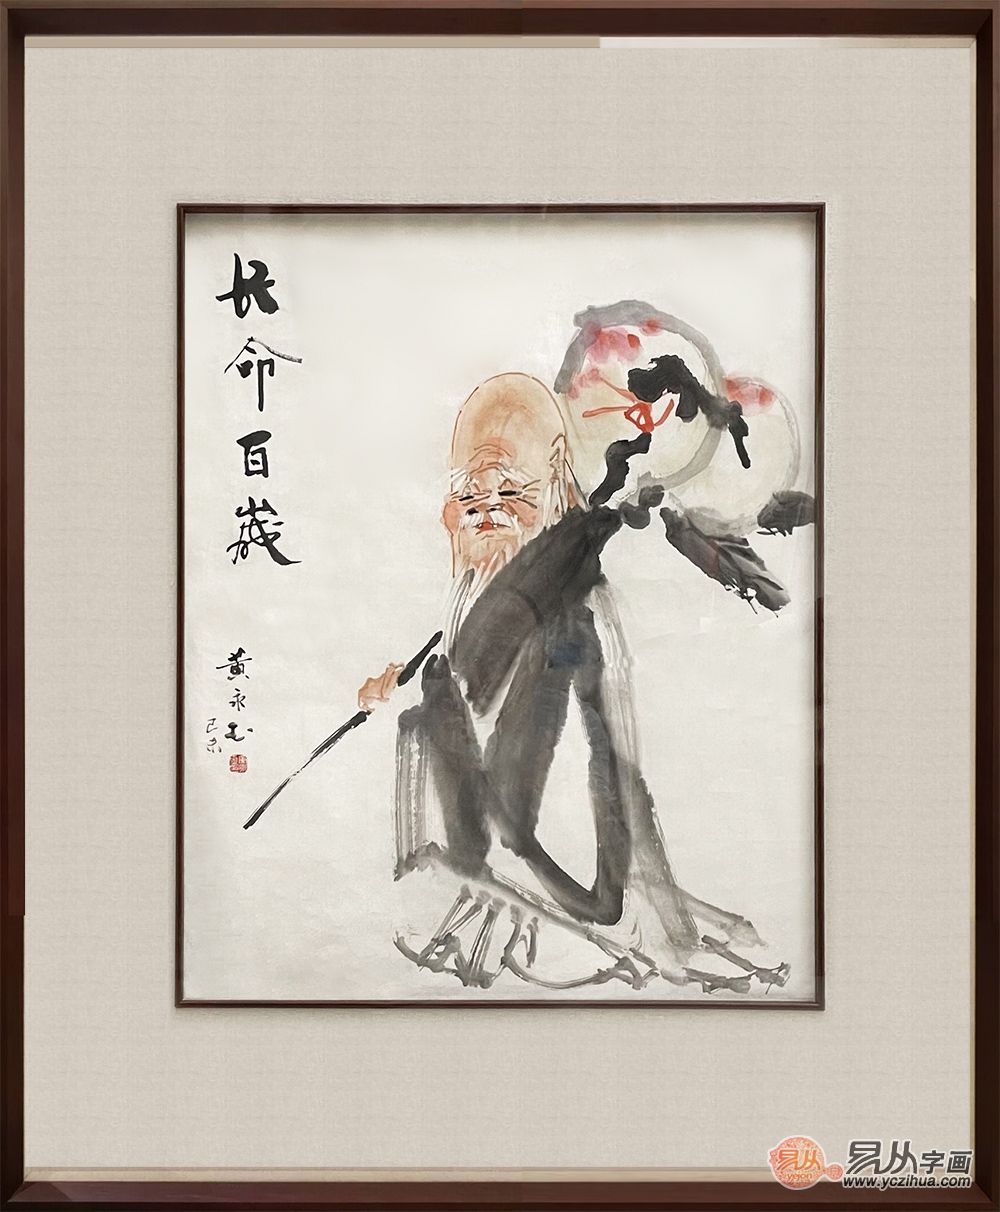 长命百岁
黄永玉
己未
易从字画
www.yczihua.com